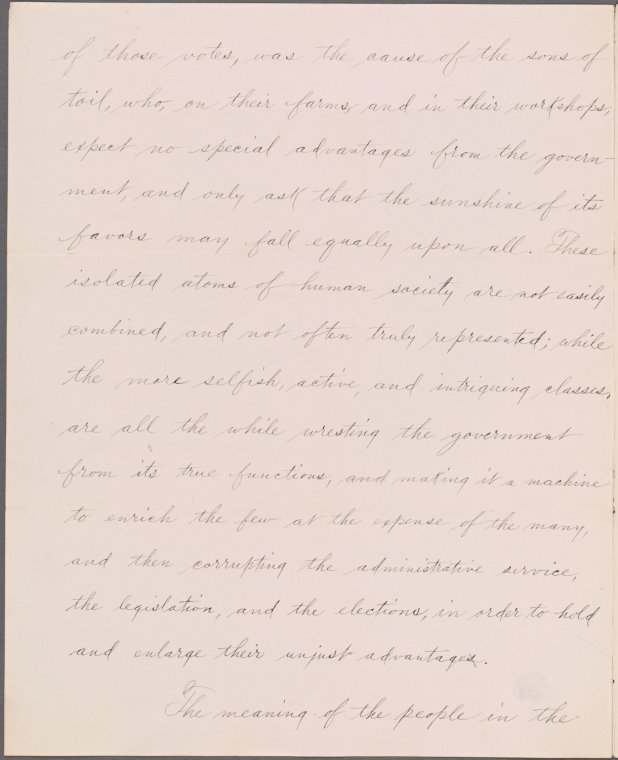 of those votes, was the cause of the sons of
toil, who, on their farms, and in their workshops,
expect no special advantages from the govern-
ment, and only ask that the sunshine of its
favors may fall equally upon all. These
isolated atoms of human society are not easily
combined, and not often truly represented; while
the more selfish, active, and intriguing classes,
are all the while wresting the government
from its true functions, and making it a machine
to enrich the few at the expense of the many,
and then corrupting the administrative service,
the legislation, and the elections, in order to hold
and enlarge their unjust advantages.
The meaning of the people in the